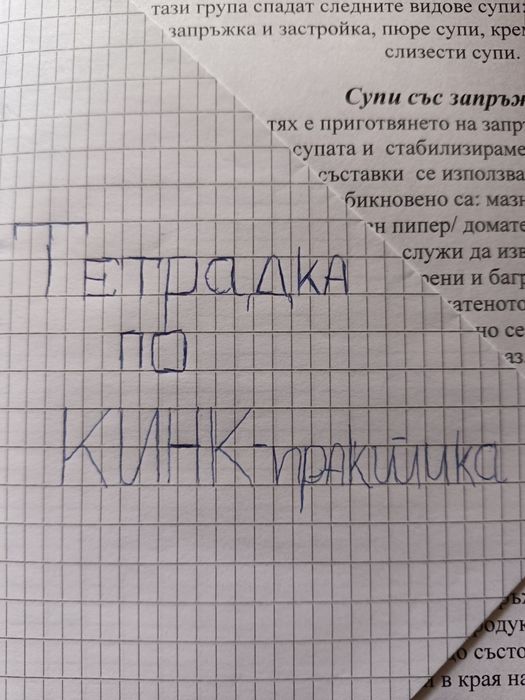 тази група спадат следните видове супи:
запръжка и застройка, пюре супи, крем
слизести супи.
Супи със запръж
тях е приготвянето на запръ
супата и стабилизираме
съставки се използва
бикновено са: мазн
н пипер/ домате
служи да изв
рени и багр
атеното
но се
аз
Тетрадка
по
КИНК-практика
ръж
одук
о състо
в края на